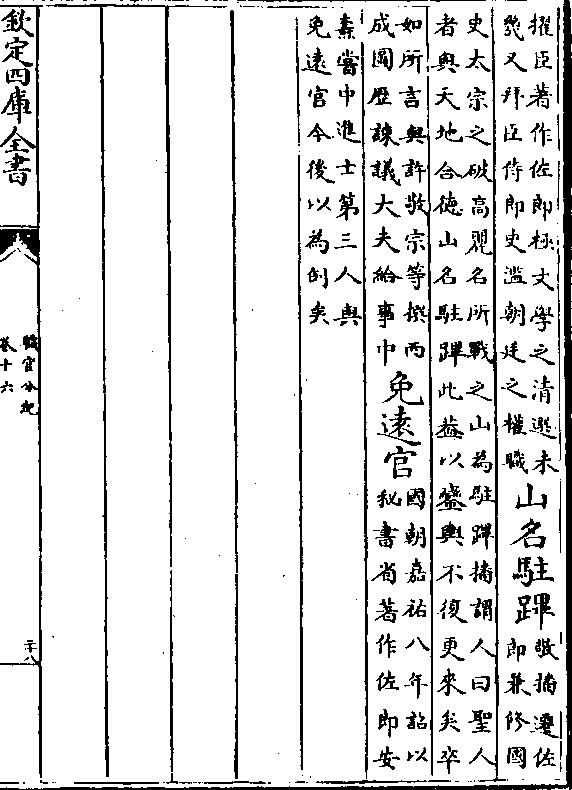 擢臣著作佐郎極文學之清選未
幾又拜臣侍郎史濫朝廷之權職
山名駐蹕
敬播遷佐
郎兼修國
史太宗之破高麗名所戰之山為駐蹕播謂人曰聖人
者與天地合德山名駐蹕此葢以鑾輿不復更來矣卒
如所言與許敬宗等撰西
成圖歴諫議大夫給事中
免遠官
國朝嘉祐八年詔以
秘書省著作佐郎安
燾嘗中進士第三人與
免遠官今後以為例矣
欽定四庫全書
職官分紀
卷十六
二十八